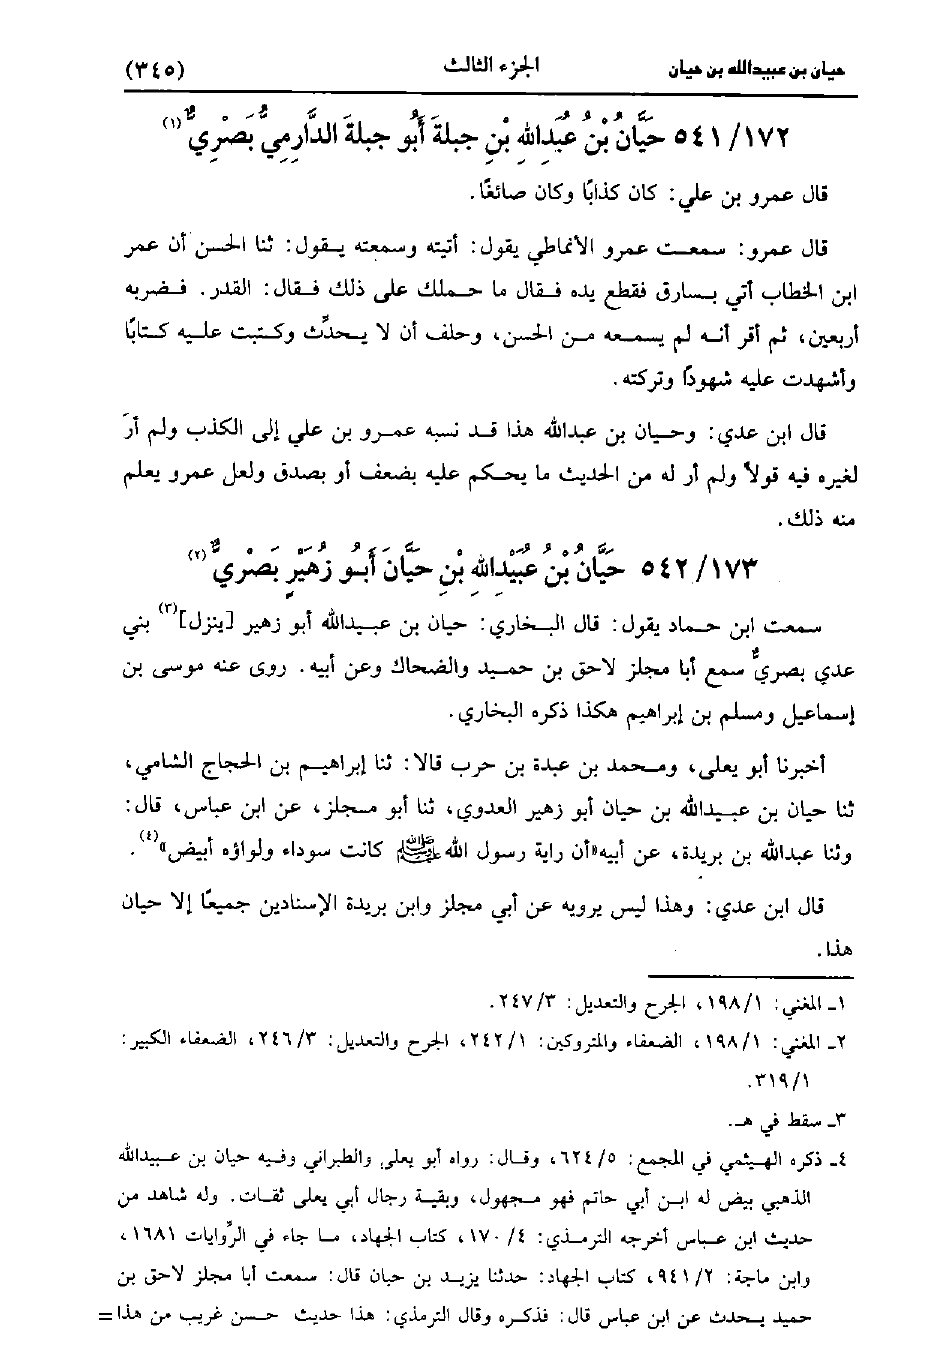 حيان بن عبيدالله بن حيان الجزء الثالث (٣٤٥)
٥٤١/١٧٢ حَيَّانُ بْنُ عُبَدُاللهِ بْنِ جبلةَ أَبُو جبلةَ الدَّارِمِيُّ بَصْرِيٌّ(١)
قال عمرو بن علي: كان كذابًا وكان صائغًا.
قال عمرو: سمعت عمرو الأنماطي يقول: أتيته وسمعته يقول: ثنا الحسن أن عمر
ابن الخطاب أتي بسارق فقطع يده فقال ما حملك على ذلك فقال: القدر. فضربه
أربعين، ثم أقر أنه لم يسمعه من الحسن، وحلف أن لا يحدِّث وكتبت عليه كتابًا
وأشهدت عليه شهودًا وتركته.
قال ابن عدي: وحيان بن عبدالله هذا قد نسبه عمرو بن علي إلى الكذب ولم أرَ
لغيره فيه قولاً ولم أر له من الحديث ما يحكم عليه بضعف أو بصدق ولعل عمرو يعلم
منه ذلك.
٥٤٢/١٧٣ حَيَّانُ بْنُ عُبَيْدُاللهِ بْنِ حيَّانَ أَبُو زُهَيْرٍ بَصْرِيٌّ(٢)
سمعت ابن حماد يقول: قال البخاري: حيان بن عبيدالله أبو زهير [ينزل](٣) بني
عدي بصريٌّ سمع أبا مجلز لاحق بن حميد والضحاك وعن أبيه. روى عنه موسى بن
إسماعيل ومسلم بن إبراهيم هكذا ذكره البخاري.
أخبرنا أبو يعلى، ومحمد بن عبدة بن حرب قالا: ثنا إبراهيم بن الحجاج الشامي،
ثنا حيان بن عبيدالله بن حيان أبو زهير العدوي، ثنا أبو مجلز، عن ابن عباس، قال:
وثنا عبدالله بن بريدة، عن أبيه«أن راية رسول الله ﷺ كانت سوداء ولواؤه أبيض»(٤).
قال ابن عدي: وهذا ليس يرويه عن أبي مجلز وابن بريدة الإسنادين جميعًا إلا حيان
هذا.
١ـ المغني: ١٩٨/١، الجرح والتعديل: ٢٤٧/٣.
٢ـ المغني: ١٩٨/١، الضعفاء والمتروكين: ٢٤٢/١، الجرح والتعديل: ٢٤٦/٣، الضعفاء الكبير:
٣١٩/١.
٣ـ سقط في هـ.
٤ـ ذكره الهيثمي في المجمع: ٦٢٤/٥، وقال: رواه أبو يعلى والطبراني وفيه حيان بن عبيدالله
الذهبي بيض له ابن أبي حاتم فهو مجهول، وبقية رجال أبي يعلى ثقات. وله شاهد من
حديث ابن عباس أخرجه الترمذي: ١٧٠/٤، كتاب الجهاد، ما جاء في الرِّوايات ١٦٨١،
وابن ماجة: ٩٤١/٢، كتاب الجهاد: حدثنا يزيد بن حيان قال: سمعت أبا مجلز لاحق بن
حميد يحدث عن ابن عباس قال: فذكره وقال الترمذي: هذا حديث حسن غريب من هذا=